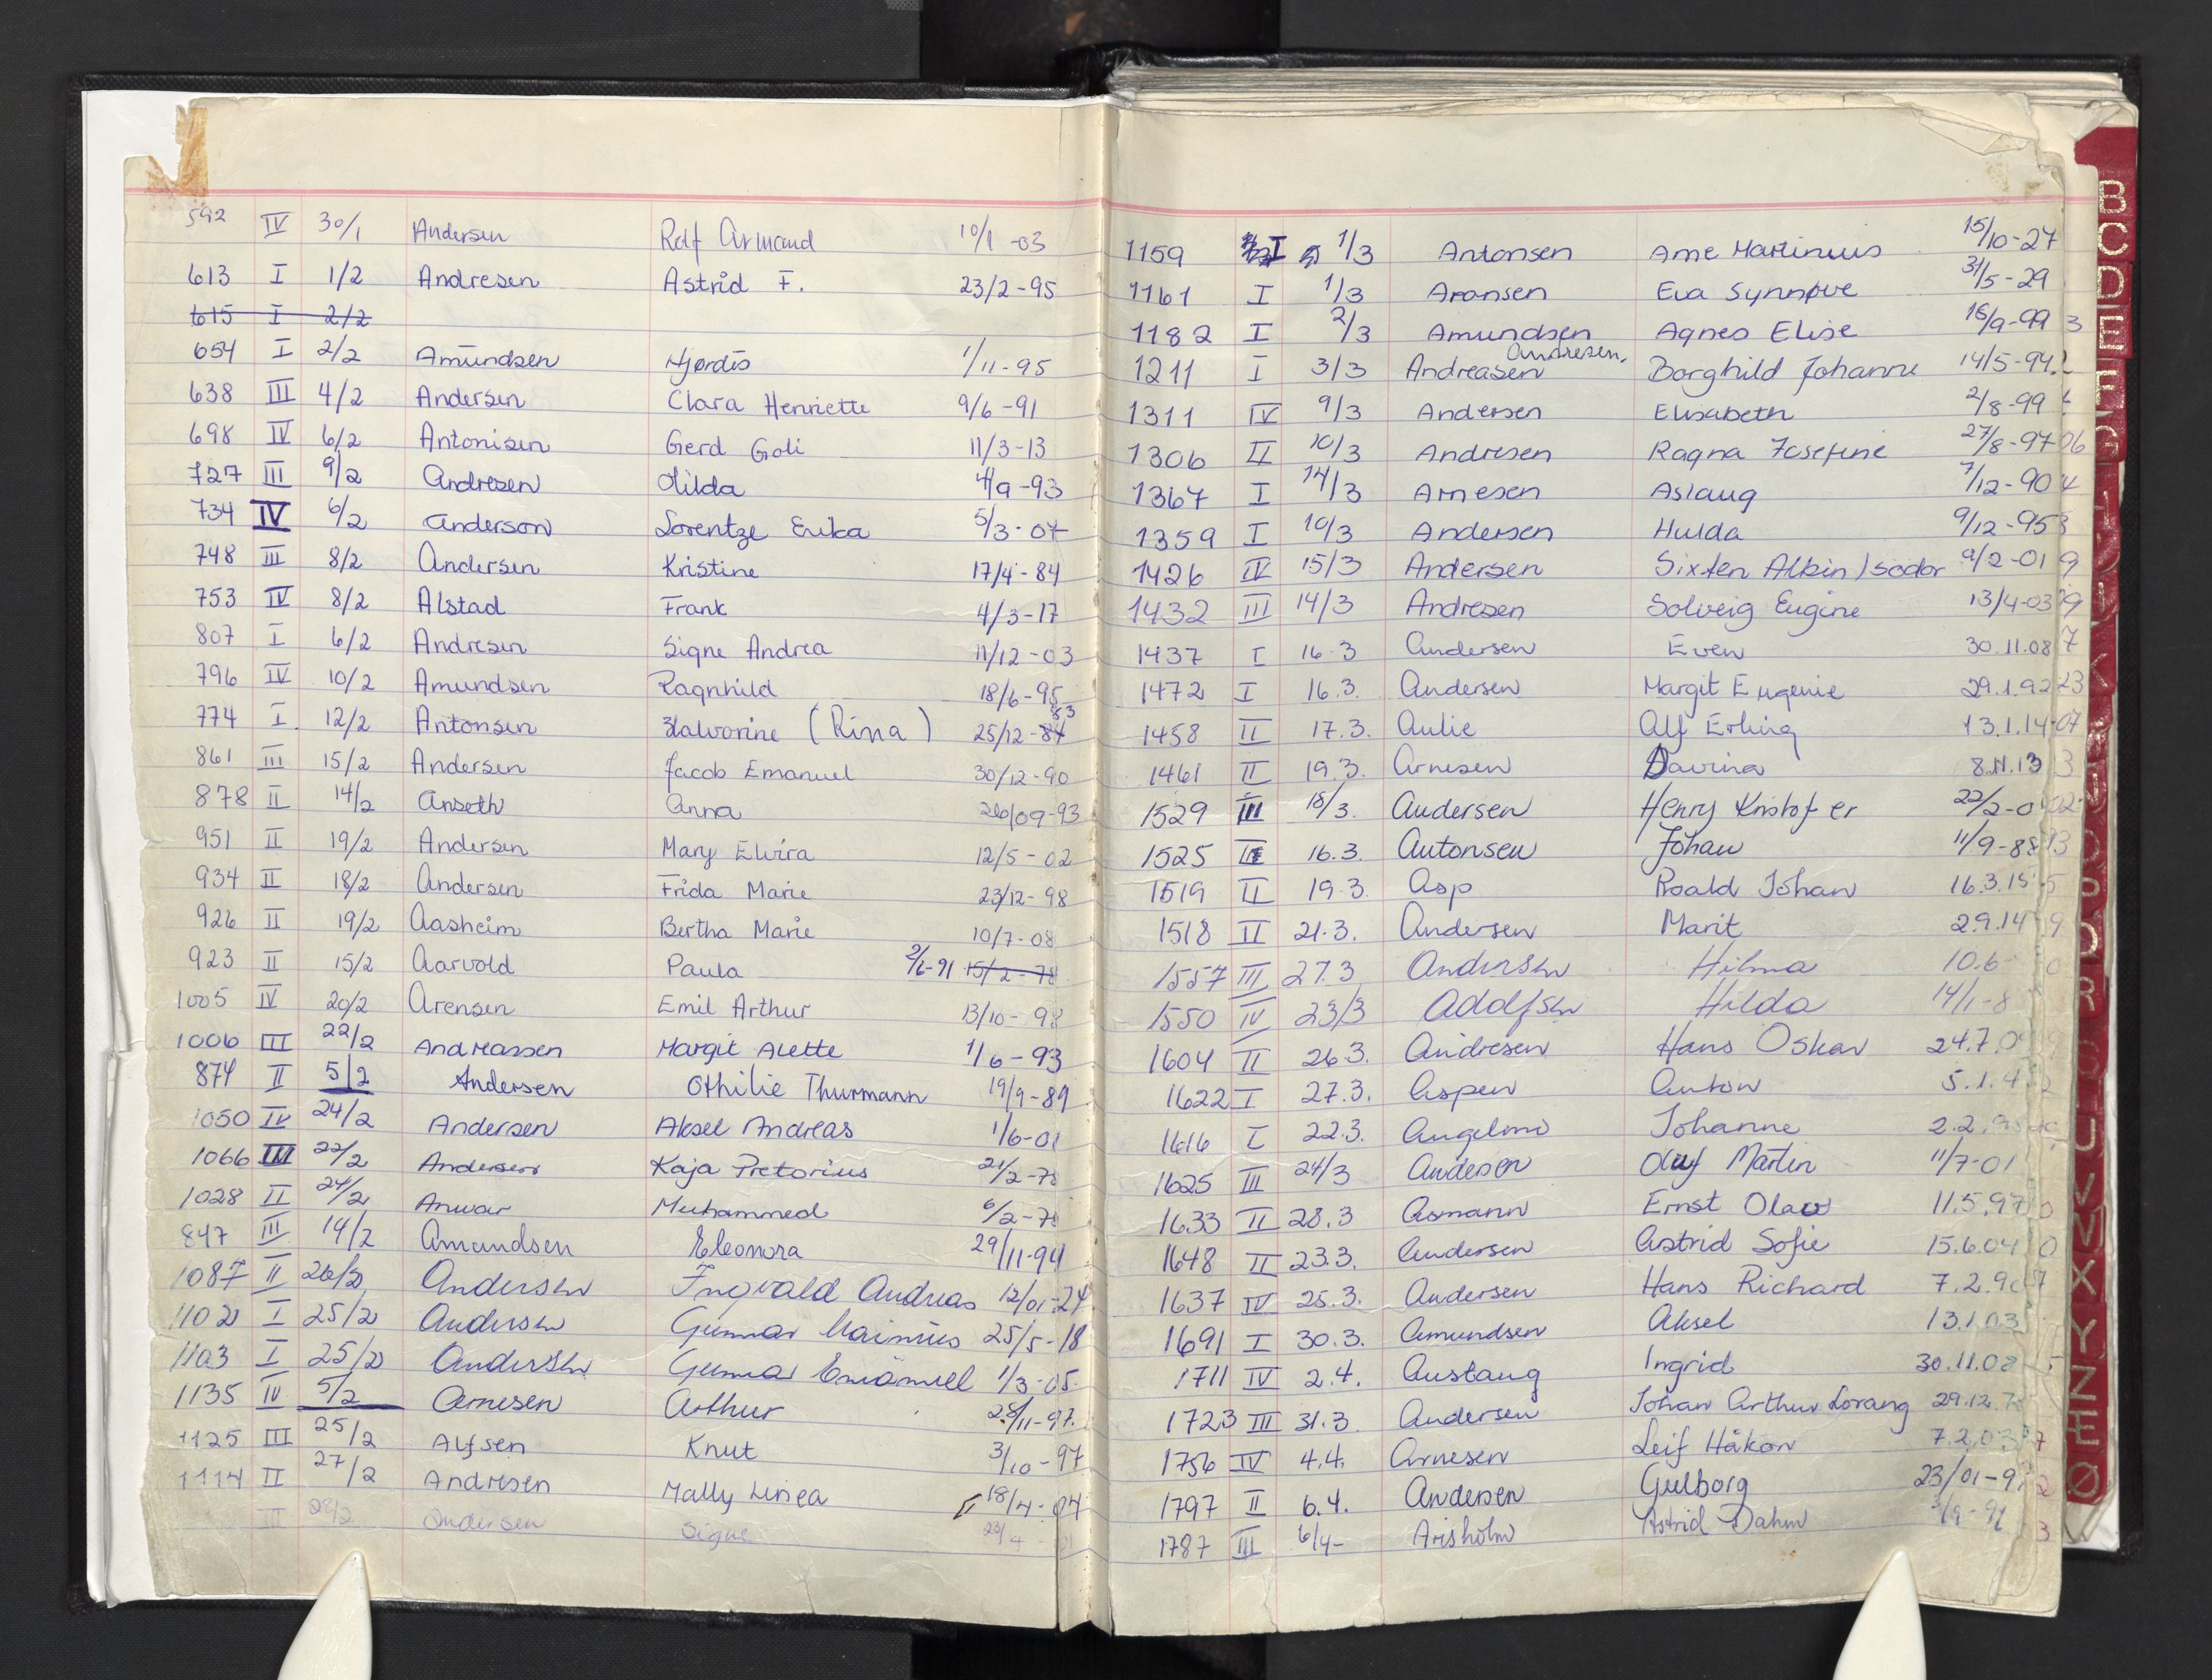 592 IV 30/1 Andersen Rolf Armand 10/1 -03
613 I 1/2 Andresen Astrid F. 23/2-95
615 I 2/2
654 I 2/2 Amundsen Hjørdis 1/11-95
638 III 4/2 Andersen Clara Henriette 9/6-91
698 IV 6/2 Antonisen Gerd Goli 11/3-13
727 III 9/2 Andresen Hilda 4/9-93
734 IV 6/2 Anderson Lorentze Erika 5/3-07
748 III 8/2 Andersen Kristine 17/4-84
753 IV 8/2 Alstad Frank 4/3-17
807 I 6/2 Andresen Signe Andrea 11/12-03
796 IV 10/2 Amundsen Ragnhild 18/6-95
774 I. 12/2 Antonsen Halvorine (Rina) 25/12-84 83
861 III 15/2 Andersen Jacob Emanuel 30/12-90
878 II 14/2 Anseth Anna 26/09-93
951 II 19/2 Andersen Mary Elvira 12/5-02
934 II 18/2 Andersen Frida Marie 23/12-98
926 II 19/2 Aasheim Bertha Marie 10/7-08
923 II 15/2 Aarvold Paula 2/6-91 15/2-78
1005 IV 20/2 Arensen Emil Arthur 13/10-98
1006 III 22/2 Andreassen Margit Alette 1/6-93
874 II 5/2 Andersen Othilie Thurmann 19/9-89
1050 IV 24/2 Andersen Aksel Andreas 1/6-01
1066 III 22/2 Andersen Kaja Pretorius 21/2-78
1028 II 24/2 Anwar Muhammed 6/2-78
847 III 14/2 Amundsen Eleonora 29/11-94
1087 II 26/2 Andersen Ingvald Andreas 12/01-24
1102 I 25/2 Andersen Gunnar 25/5-18
1103 I 25/2 Andersen Gunnar Emanuel 1/3-05
1135 IV 5/2 Arnesen Arthur 28/11-97
1125 III 25/2 Alfsen Knut 3/10-97
1114 II 27/2 Andresen Mally Linea 18/4-04
III 28/2 Andersen Signe 23/4
1159 I 1/3 Antonsen Arne Martinius 15/10-27
1161 I 1/3 Aronsen Eva Synnøve 31/5-29
1182 I 2/3 Amundsen Agnes Elise 16/9-99
1211 I 3/3 Andreasen Andresen. Borghild Johanne 14/5-94
1311 IV 9/3 Andersen Elisabeth 2/8-99
1306 II 10/3 Andresen Ragna Josefine 27/8-97
1367 I 14/3 Arnesen Aslaug 7/12-90
1359 I 10/3 Andersen Hulda 9/12-95
1426 IV 15/3 Andersen Sixten Albin Isodor 9/2-01
1432 III 14/3 Andresen Solveig Eugine 13/4-03
1437 I 16.3 Andersen Even 30.11.08
1472 I 16.3. Andersen Margit Eugenie 29.1.92
1458 II 17.3. Aulie Alf Erling 13.1.14
1461 II 19.3. Arnesen Davina 8.11.13
1529 III 18/3. Andersen Henry Kristofer 22/2-0
1525 III 16.3. Antonsen Johan 11/9-88
1519 II 19.3. Asp Roald Johan 16.3.15
1518 II 21.3. Andersen Marit 2.9.14
1557 III 27.3 Andersen Hilma 10.6
1550 IV 23/3 Adolfsen Hilda 14/1-8
1604 II 26.3. Andresen Hans Oskar 24.7.0
1622 I 27.3. Aspen Anton 5.1.4
1616 I 22.3. Angelmo Johanne 2.2.
1625 III 24/3 Andersen Oluf Martin 11/7-01
1633 II 28.3 Asmann Ernst Olav 11.5.97
1648 II 23.3. Andersen Astrid Sofie 15.6.04
1637 IV 25.3. Andersen Hans Richard 7.2.90
1691 I 30.3. Amundsen Aksel 13.1.03
1711 IV 2.4. Austang Ingrid 30.11.08
1723 III 31.3 Andersen Johan Arthur Lorang 29.12.
1756 IV 4.4. Arnesen Leif Håkon 7.2.03
1797 II 6.4. Andersen Gulborg 23/01-9
1787 III 6/4- Arisholm Astrid Dahm /9-91
B
C
D
E
F
G
K
R
U
V
X
Y
Z
Æ
Ø